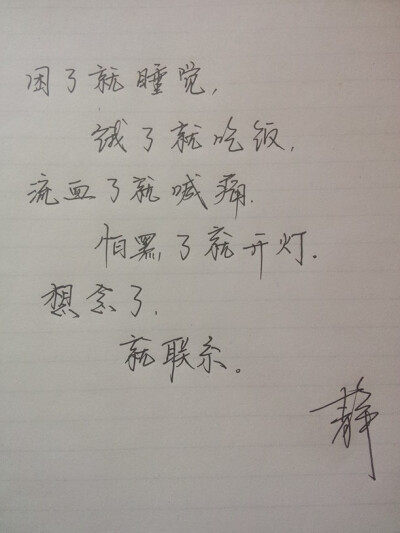 困了就睡觉，
饿了就吃饭，
流血了就喊痛.
怕黑了就开灯.
想念了，
就联系。
静